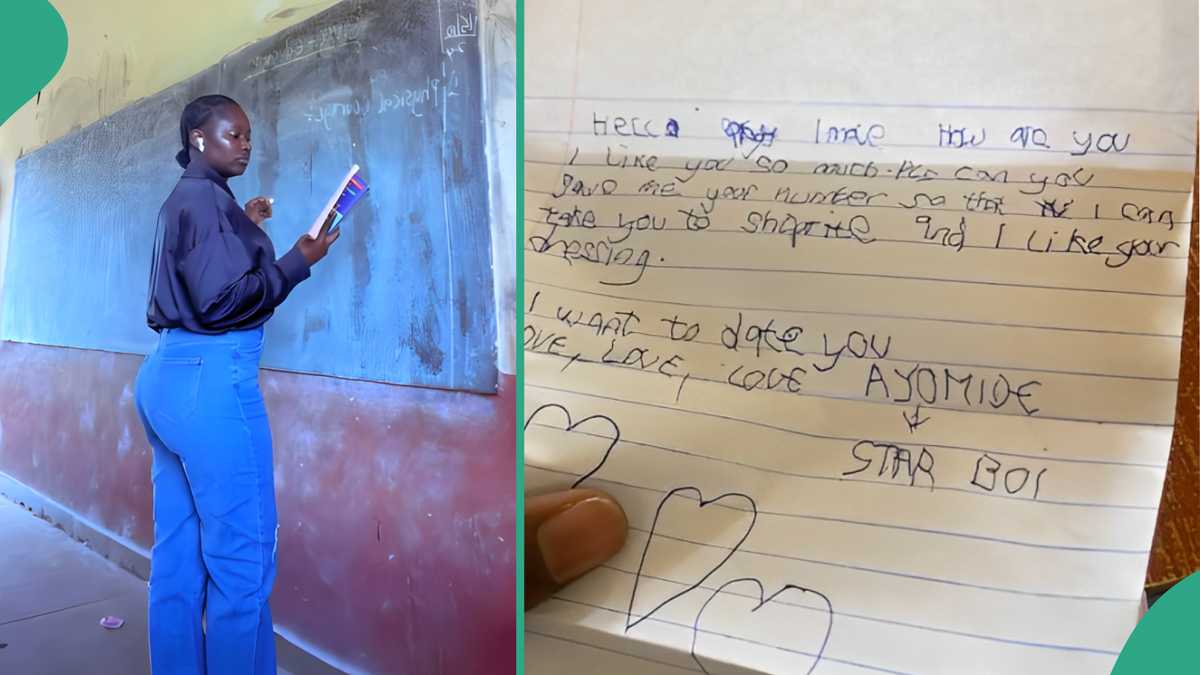 Physical
Hello How are you
I like you so much. Pls can you
gave me your number so that I can
take you to shoprite and I like your
dressing.
I want to date you
LOVE, LOVE AYOMIDE
STAR BOI